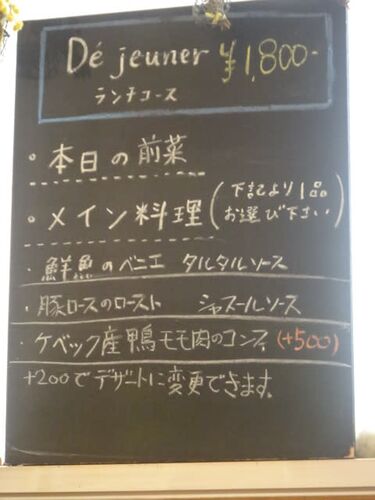 Déjeuner ¥1,800-
ランチコース
・本日の前菜
・メイン料理(下記より1品お選び下さい)
・鮮魚のベニエ タルタルソース
・豚ロースのロースト シャスールソース
・ケベック産鴨モモ肉のコンフィ(+500)
+200でデザートに変更できます。